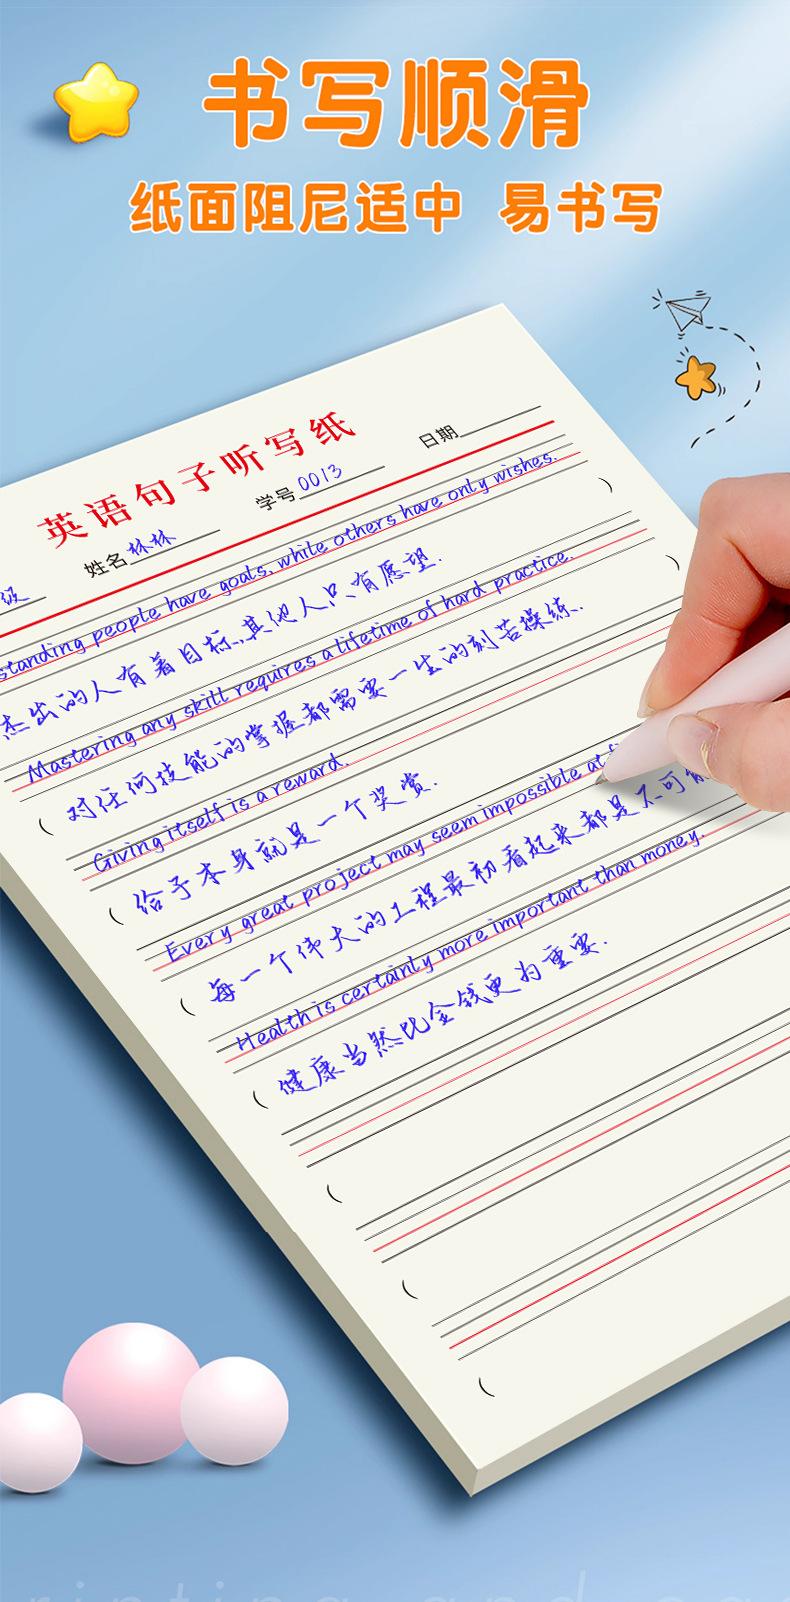 书写顺滑
纸面阻尼适中 易书写
英语句子听写纸
级 姓名 林林 学号 0013 日期
standing people have goals, while others have only wishes.
杰出的人有着目标,其他人只有愿望.
Mastering any skill requires a lifetime of hard practice.
对任何技能的掌握都需要一生的刻苦操练.
Giving itself is a reward.
给予本身就是一个奖赏.
Every great project may seem impossible at
每一个伟大的工程最初看起来都是不可能
Health is certainly more important than money.
健康当然比金钱更为重要.